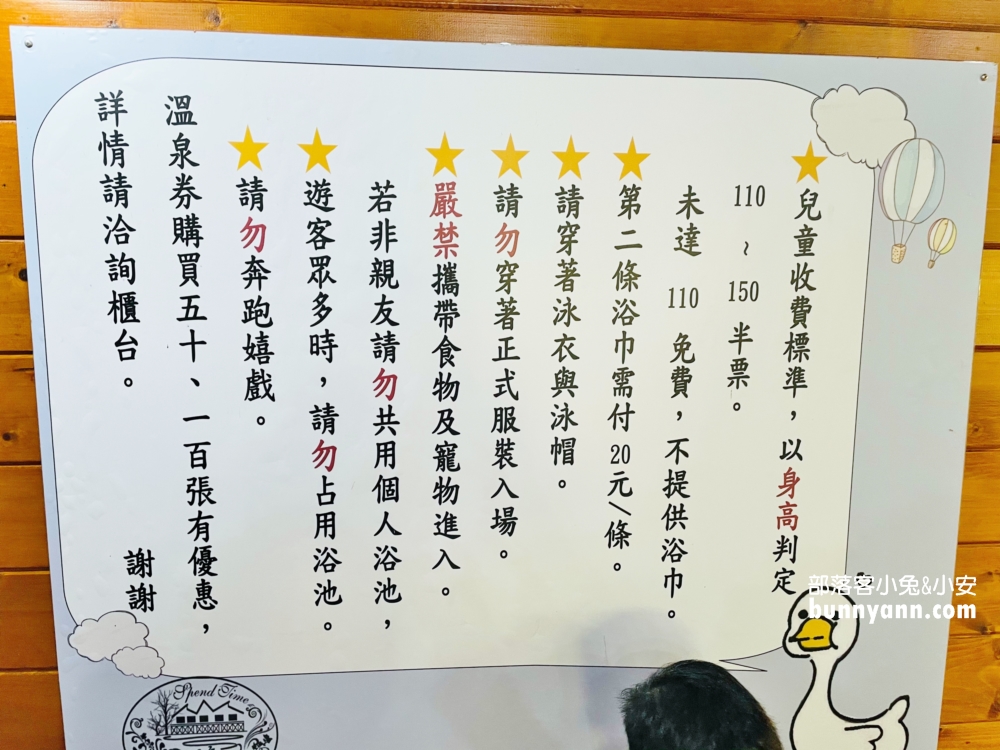 兒童收費標準，以身高判定
110 ~ 150 半票。
未達 110 免費，不提供浴巾。
第二條浴巾需付20元/條。
請穿著泳衣與泳帽。
請勿穿著正式服裝入場。
嚴禁攜帶食物及寵物進入。
若非親友請勿共用個人浴池，
遊客眾多時，請勿占用浴池。
請勿奔跑嬉戲。
溫泉券購買五十、一百張有優惠，
詳情請洽詢櫃台。
謝謝
部落客小兔&小安
bunnyann.com
Spend Time